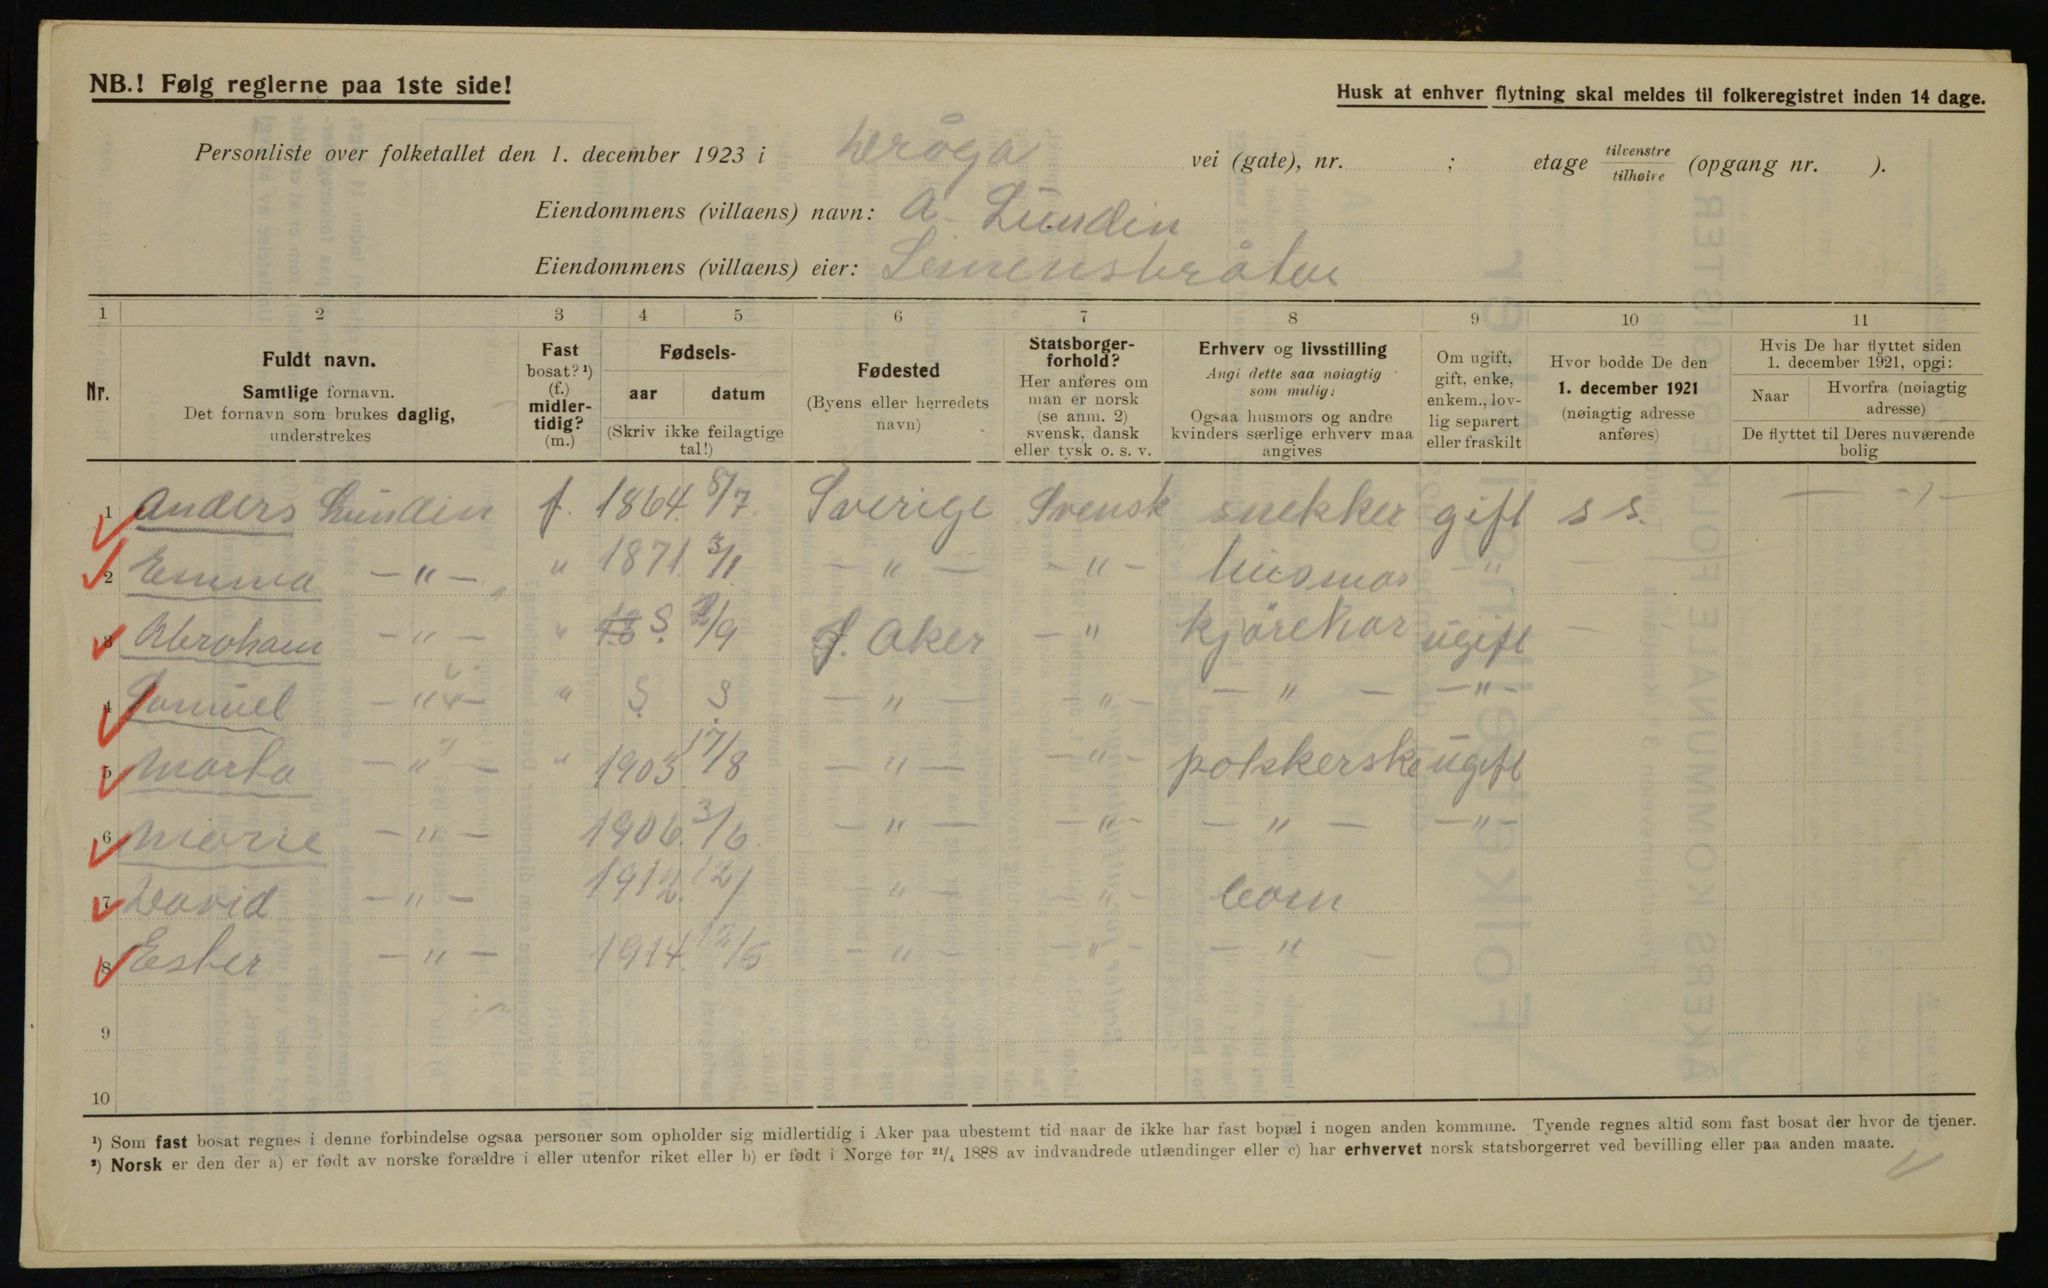 NB.! Følg reglerne paa 1ste side!
Husk at enhver flytning skal meldes til folkeregistret inden 14 dage.
Personliste over folketallet den 1. december 1923 i vei (gate), nr. ; etage tilvenstre/tilhøire (opgang nr. ).
Eiendommens (villaens) navn: A. Lundin
Eiendommens (villaens) eier: Simensbråten
1 2 3 4 5 6 7 8 9 10 11
Nr.
Fuldt navn.
Samtlige fornavn.
Det fornavn som brukes daglig,
understrekes
Fast
bosat? ¹)
(f.)
midler-
tidig?
(m.)
Fødsels-
aar datum
(Skriv ikke feilagtige
tal!)
Fødested
(Byens eller herredets
navn)
Statsborger-
forhold?
Her anføres om
man er norsk
(se anm. 2)
svensk, dansk
eller tysk o. s. v.
Erhverv og livsstilling
Angi dette saa nøiagtig
som mulig:
Ogsaa husmors og andre
kvinders særlige erhverv maa
angives
Om ugift,
gift, enke,
enkem., lov-
lig separert
eller fraskilt
Hvor bodde De den
1. december 1921
(nøiagtig adresse
anføres)
Hvis De har flyttet siden
1. december 1921, opgi:
Naar Hvorfra (nøiagtig
adresse)
De flyttet til Deres nuværende
bolig
1 Anders Lundin f. 1864. 8/7. Sverige Svensk snekker gift s s. — -"-
2 Emma — " — " 1871. 3/11. — " — — " — husmor — " —
3 Abraham — " — " S. 2/9 Aker — " kjörekar ugift —
4 Samuel — " — " S. S. — " — — " — — " — — " —
5 Marta — " — " 1903. 17/8 — " — — " — ugift
6 Marie — " — 1906. 3/6. — " — — " — — " — — " —
7 David — " — 1912. 12/1 — " — " barn
8 Ester — " — 1914. 12/5 — " — — " — — " —
9
10
¹) Som fast bosat regnes i denne forbindelse ogsaa personer som opholder sig midlertidig i Aker paa ubestemt tid naar de ikke har fast bopæl i nogen anden kommune. Tyende regnes altid som fast bosat der hvor de tjener.
²) Norsk er den der a) er født av norske forældre i eller utenfor riket eller b) er født i Norge før 21/4 1888 av indvandrede utlændinger eller c) har erhvervet norsk statsborgerret ved bevilling eller paa anden maate.